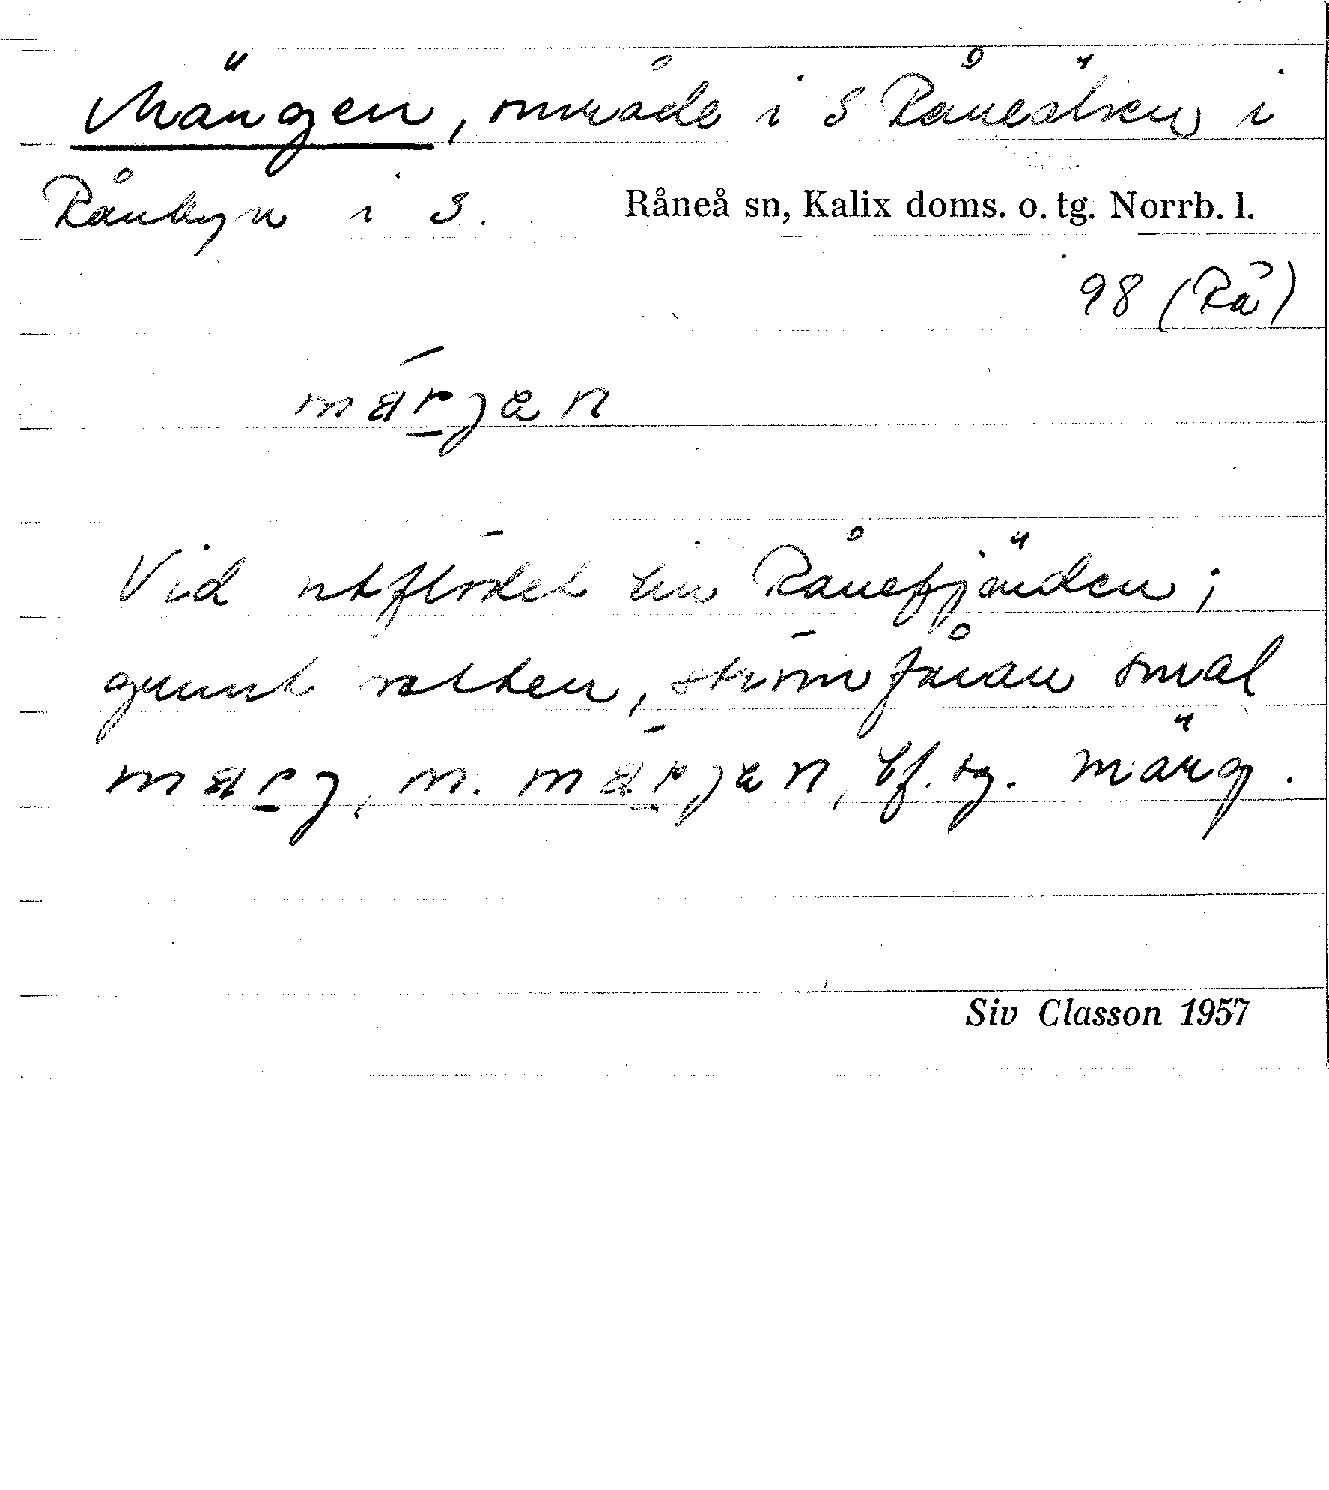 Märgen, område i S Råneälven i
Rånbyn i S. Råneå sn, Kalix doms. o. tg. Norrb. l.
98 (Rå)
märjan
Vid utflödet till Rånefjärden;
grunt vatten, strömfåran smal
märj, n. märjan, bf. sg. märg.
Siv Classon 1957